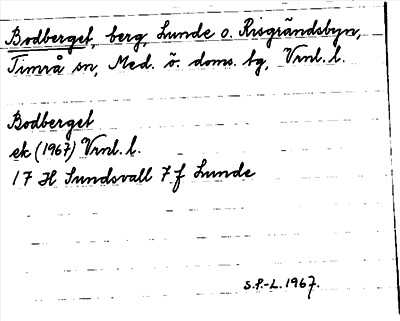 Bodberget, berg, Lunde o. Risgrändsbyn,
Timrå sn, Med. ö. doms. tg, Vrnl. l.
Bodberget
ek (1967) Vrnl. l.
17 H Sundsvall 7 f Lunde
S.P.-L. 1967.